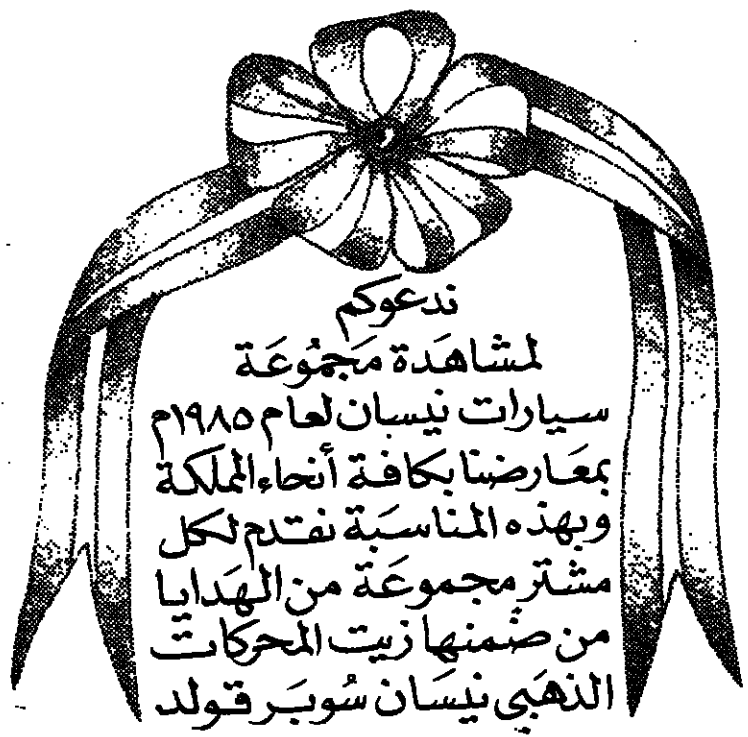 ندعوكم
لمشاهَدة مَجمُوعَة
سيارات نيسان لعام ١٩٨٥م
بمعَارضنا بكافة أنحاء المملكة
وبهذه المناسَبة نقدم لكل
مشترٍ مجموعَة من الهَدايا
من ضمنها زيت المحركات
الذهَبي نيسَان سُوبَر قولد